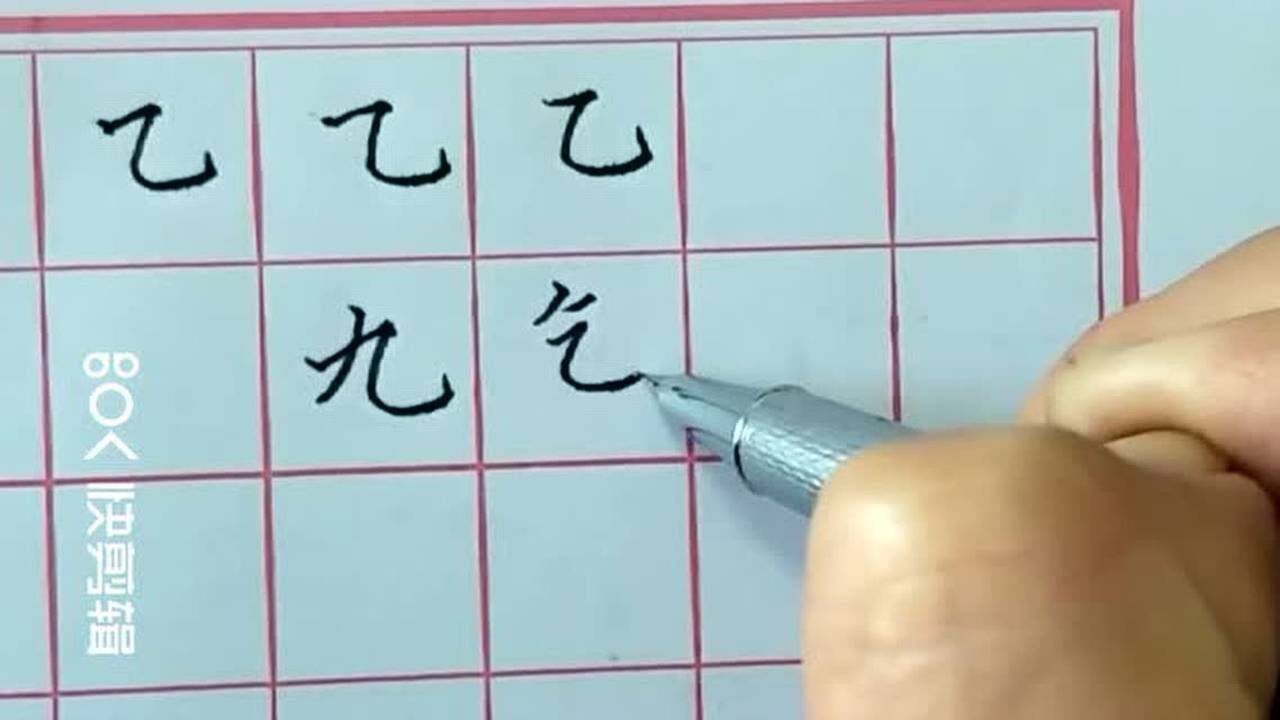 乙 乙 乙
九 乞
快剪辑